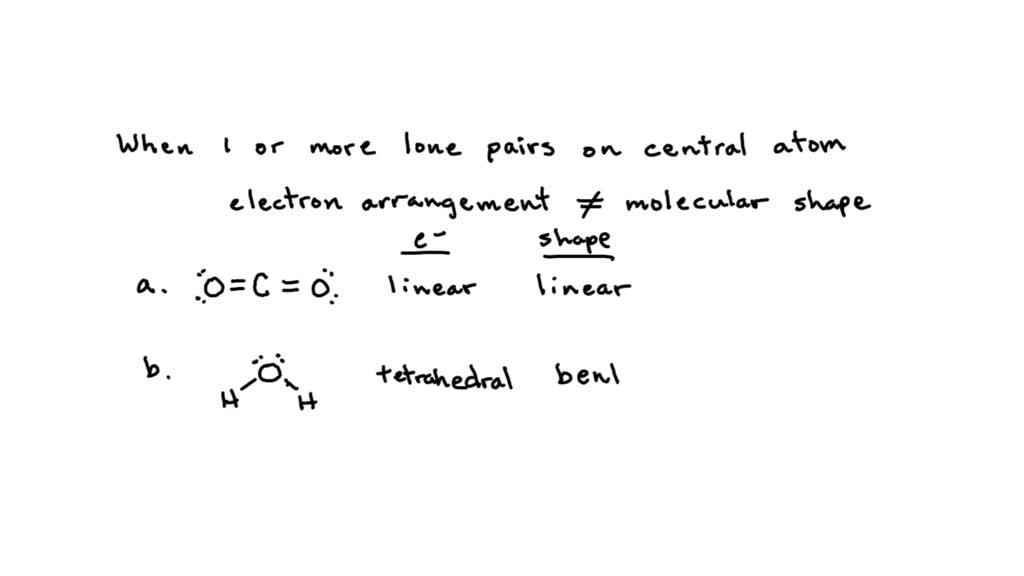 When 1 or more lone pairs on central atom
electron arrangement ≠ molecular shape
e⁻ shape
a. :Ö=C=Ö: linear linear
b. H Ö H tetrahedral benl